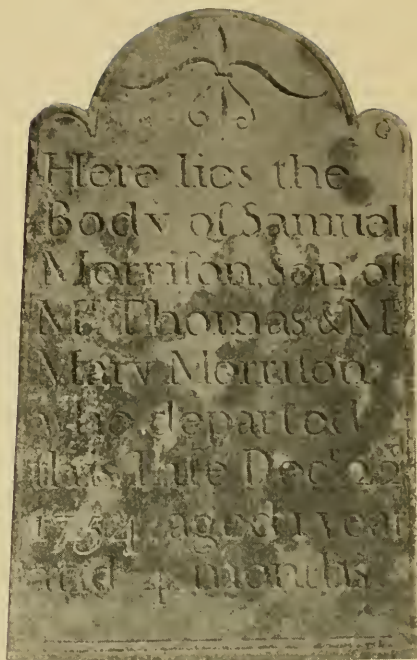 Here lies the
Body of Samuel
Morriſon, Son of
Mr. Thomas & Mrs.
Mary Morriſon,
who departed
this Life Decr. 22d
1754 aged 1 year
and 4 months